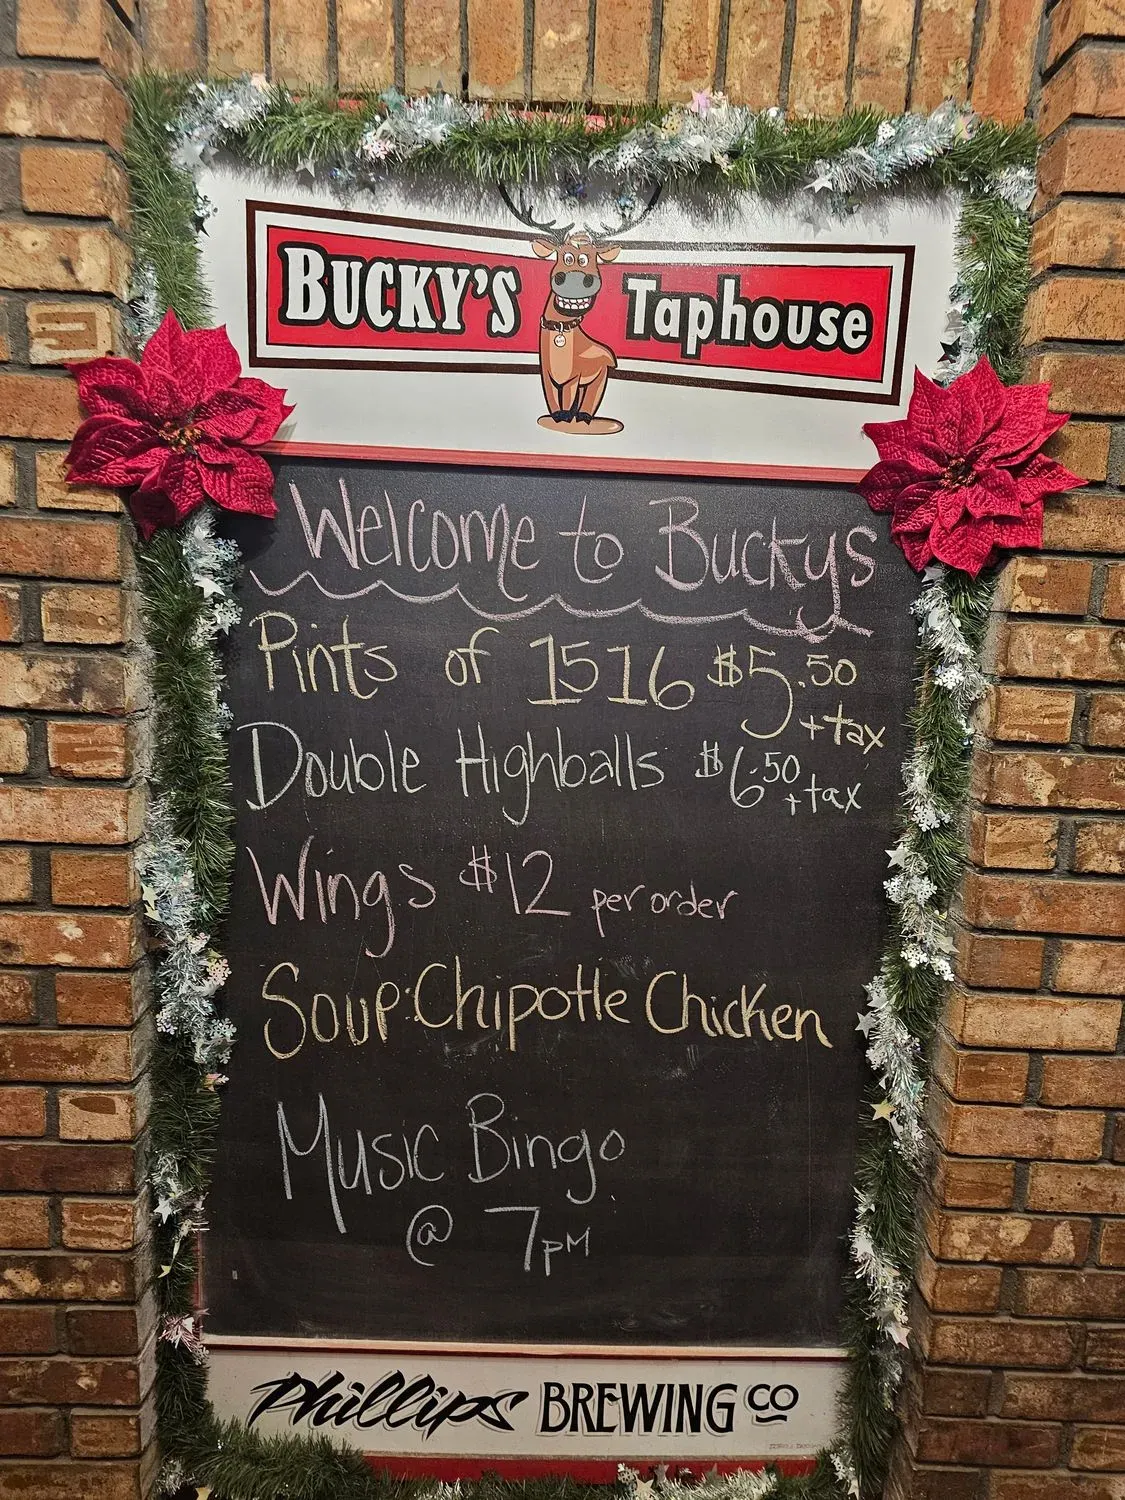 BUCKY'S Taphouse
Welcome to Buckys
Pints of 1516 $5.50
+tax
Double Highballs $6.50
+tax
Wings $12 per order
Soup: Chipotle Chicken
Music Bingo
@ 7pm
Phillips BREWING CO